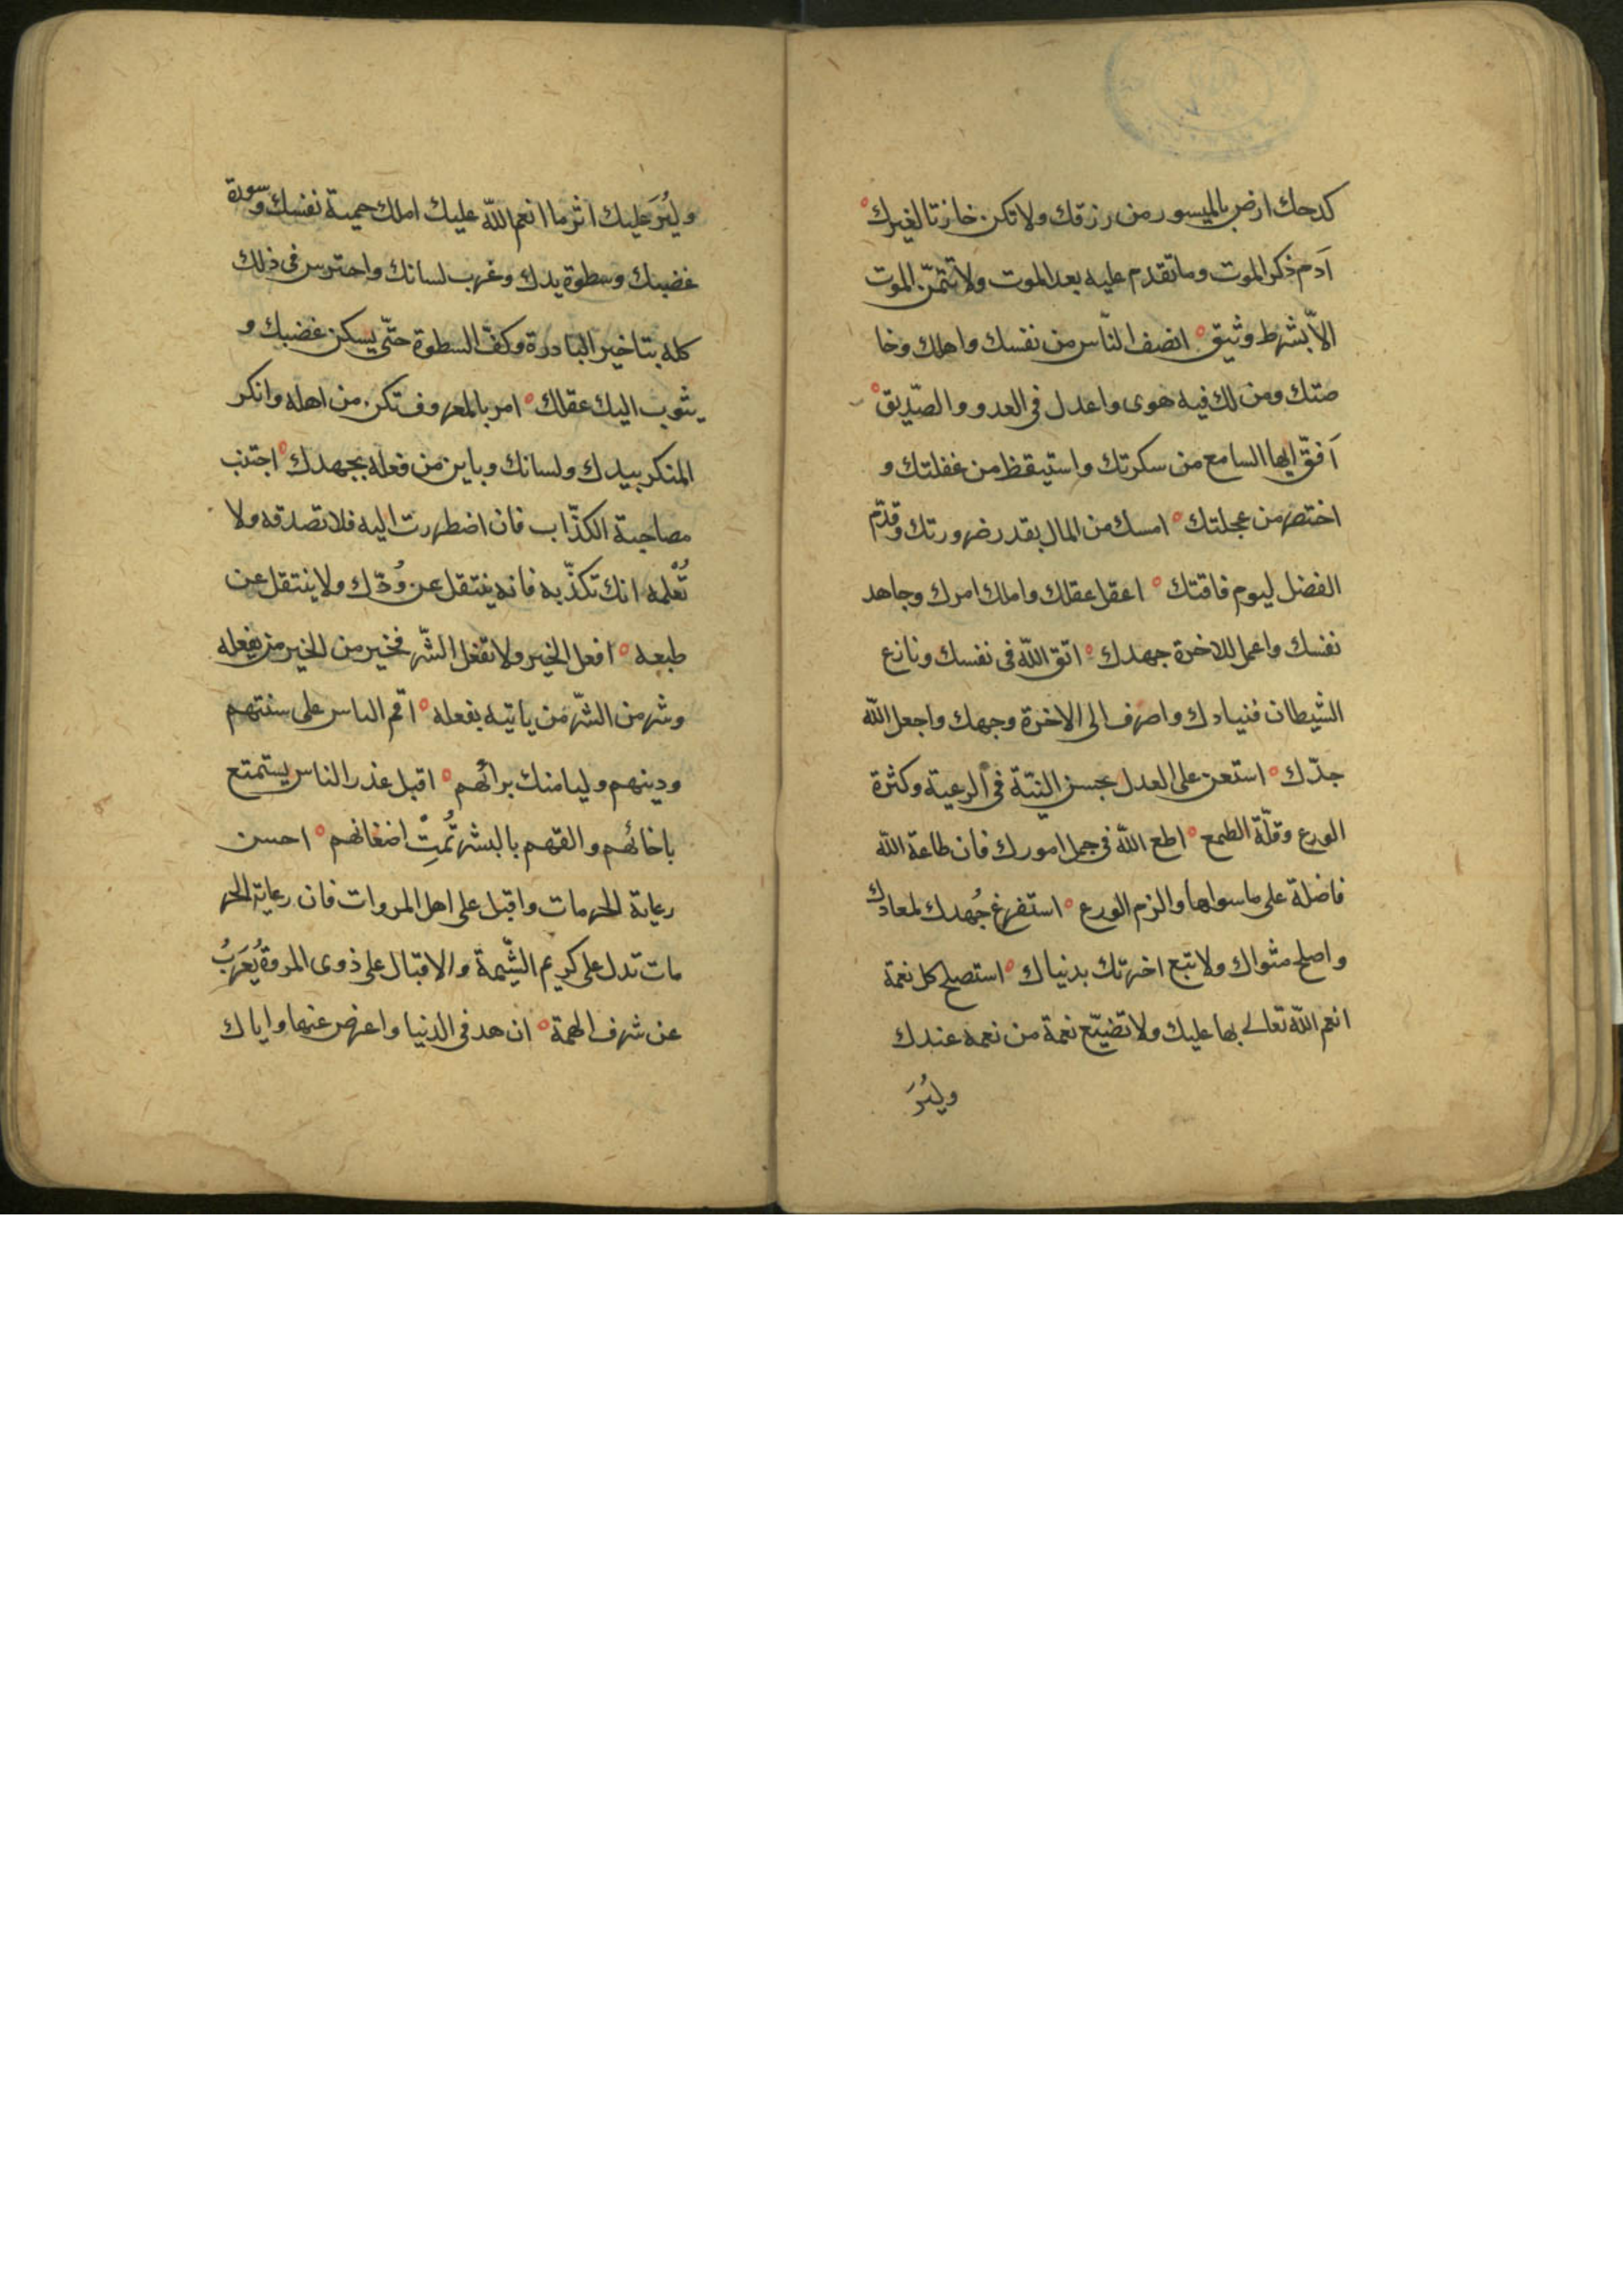 كدحك ارض بالميسور من رزقك ولا تكن خازنا لغيرك
اَدم ذكر الموت وما تقدم عليه بعد الموت ولا تتمنّ الموت
الاّ بشرط وثيق ° انصف النّاس من نفسك واهلك وخا
صتك ومن لك فيه هوى واعدل فى العدو والصّديق °
اَفق ايها السامع من سكرتك واستيقظ من غفلتك و
اختصر من عجلتك ° امسك من المال بقدر ضرورتك وقدّم
الفضل ليوم فاقتك ° اعقل عقلك واملك امرك وجاهد
نفسك واعمل للاخرة جهدك ° اتق اللّه فى نفسك ونازع
الشيطان قيادك واصرف الى الاخرة وجهك واجعل اللّه
جدّك ° استعن على العدل بحسن النيّة فى الرعية وكثرة
الورع وقلّة الطمع ° اطع اللّه فى جمل امورك فان طاعة اللّه
فاضلة على ما سواها والزم الورع ° استفرغ جُهدك لمعادك
واصلح مثواك ولا تبع اخرتك بدنياك ° استصلح كل نعمة
انعم اللّه تعالى بها عليك ولا تضيّع نعمة من نعمه عندك
وليُرَ
وليُرَ عليك اثر ما انعم اللّه عليك املك حمية نفسك وسورة
غضبك وسطوة يدك وغرب لسانك واحترس فى ذلك
كله بتاخير البادرة وكفّ السطوة حتّى يسكن غضبك و
يثوب اليك عقلك ° امر بالمعروف تكن من اهله وانكر
المنكر بيدك ولسانك وباين من فعله بجهدك ° اجتنب
مصاحبة الكذّاب فان اضطررت اليه فلا تصدقه ولا
تُعْلمه انك تكذّبه فانه ينتقل عن وُدّك ولا ينتقل عن
طبعه ° افعل الخير ولا تفعل الشّر فخير من الخير من يفعله
وشر من الشّر من ياتيه بفعله ° اقم الناس على سنتهم
ودينهم وليامنك برائهم ° اقبل عذر الناس يستمتع
باخائهم والقهم بالبشر تُمِتْ اضغانهم ° احسن
رعاية الحرمات واقبل على اهل المروات فان رعاية الحر
مات تدل على كريم الشّيمة والاقبال على ذوى المروة يُعَربُ
عن شرف الهمة ° ازهد فى الدنيا واعرض عنها واياك